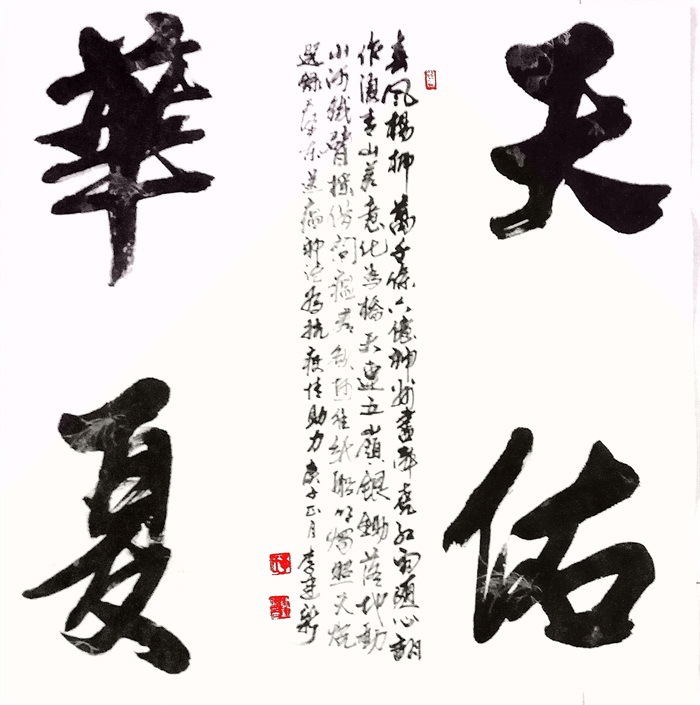 天佑
春風楊柳萬千條六億神州盡舜堯紅雨隨心翻
作浪青山著意化為橋天連五嶺銀鋤落地動
山河鐵臂搖借問瘟君欲何往紙船明燭照天燒
選錄毛澤東送瘟神詩為抗疫情助力庚子正月李建新
華夏